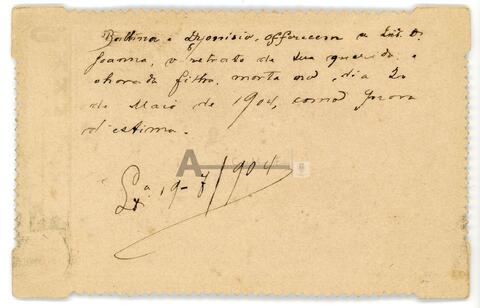 e Dyonisio, offerecem a
Joanna, o retrato da sua querida e
chorada filha morta no dia 20
de Maio de 1904, como prova
d'estima.
A
Lx.ª 19-7/1904